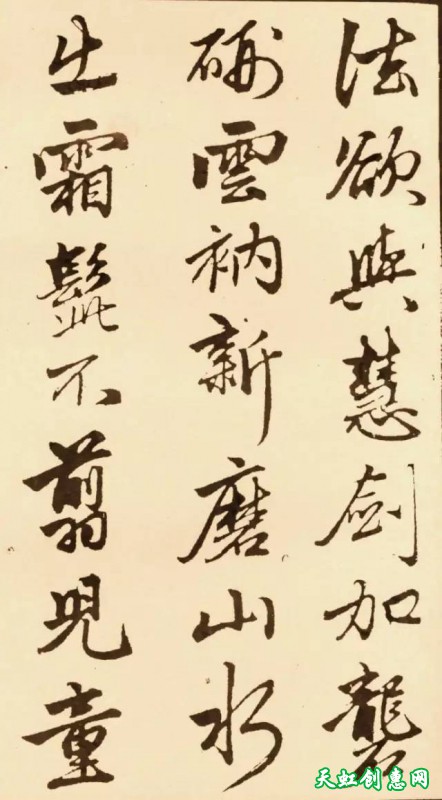 法欲與慧劍加礱
硎雲衲新磨山水
出霜髭不翦兒童
天虹创惠网